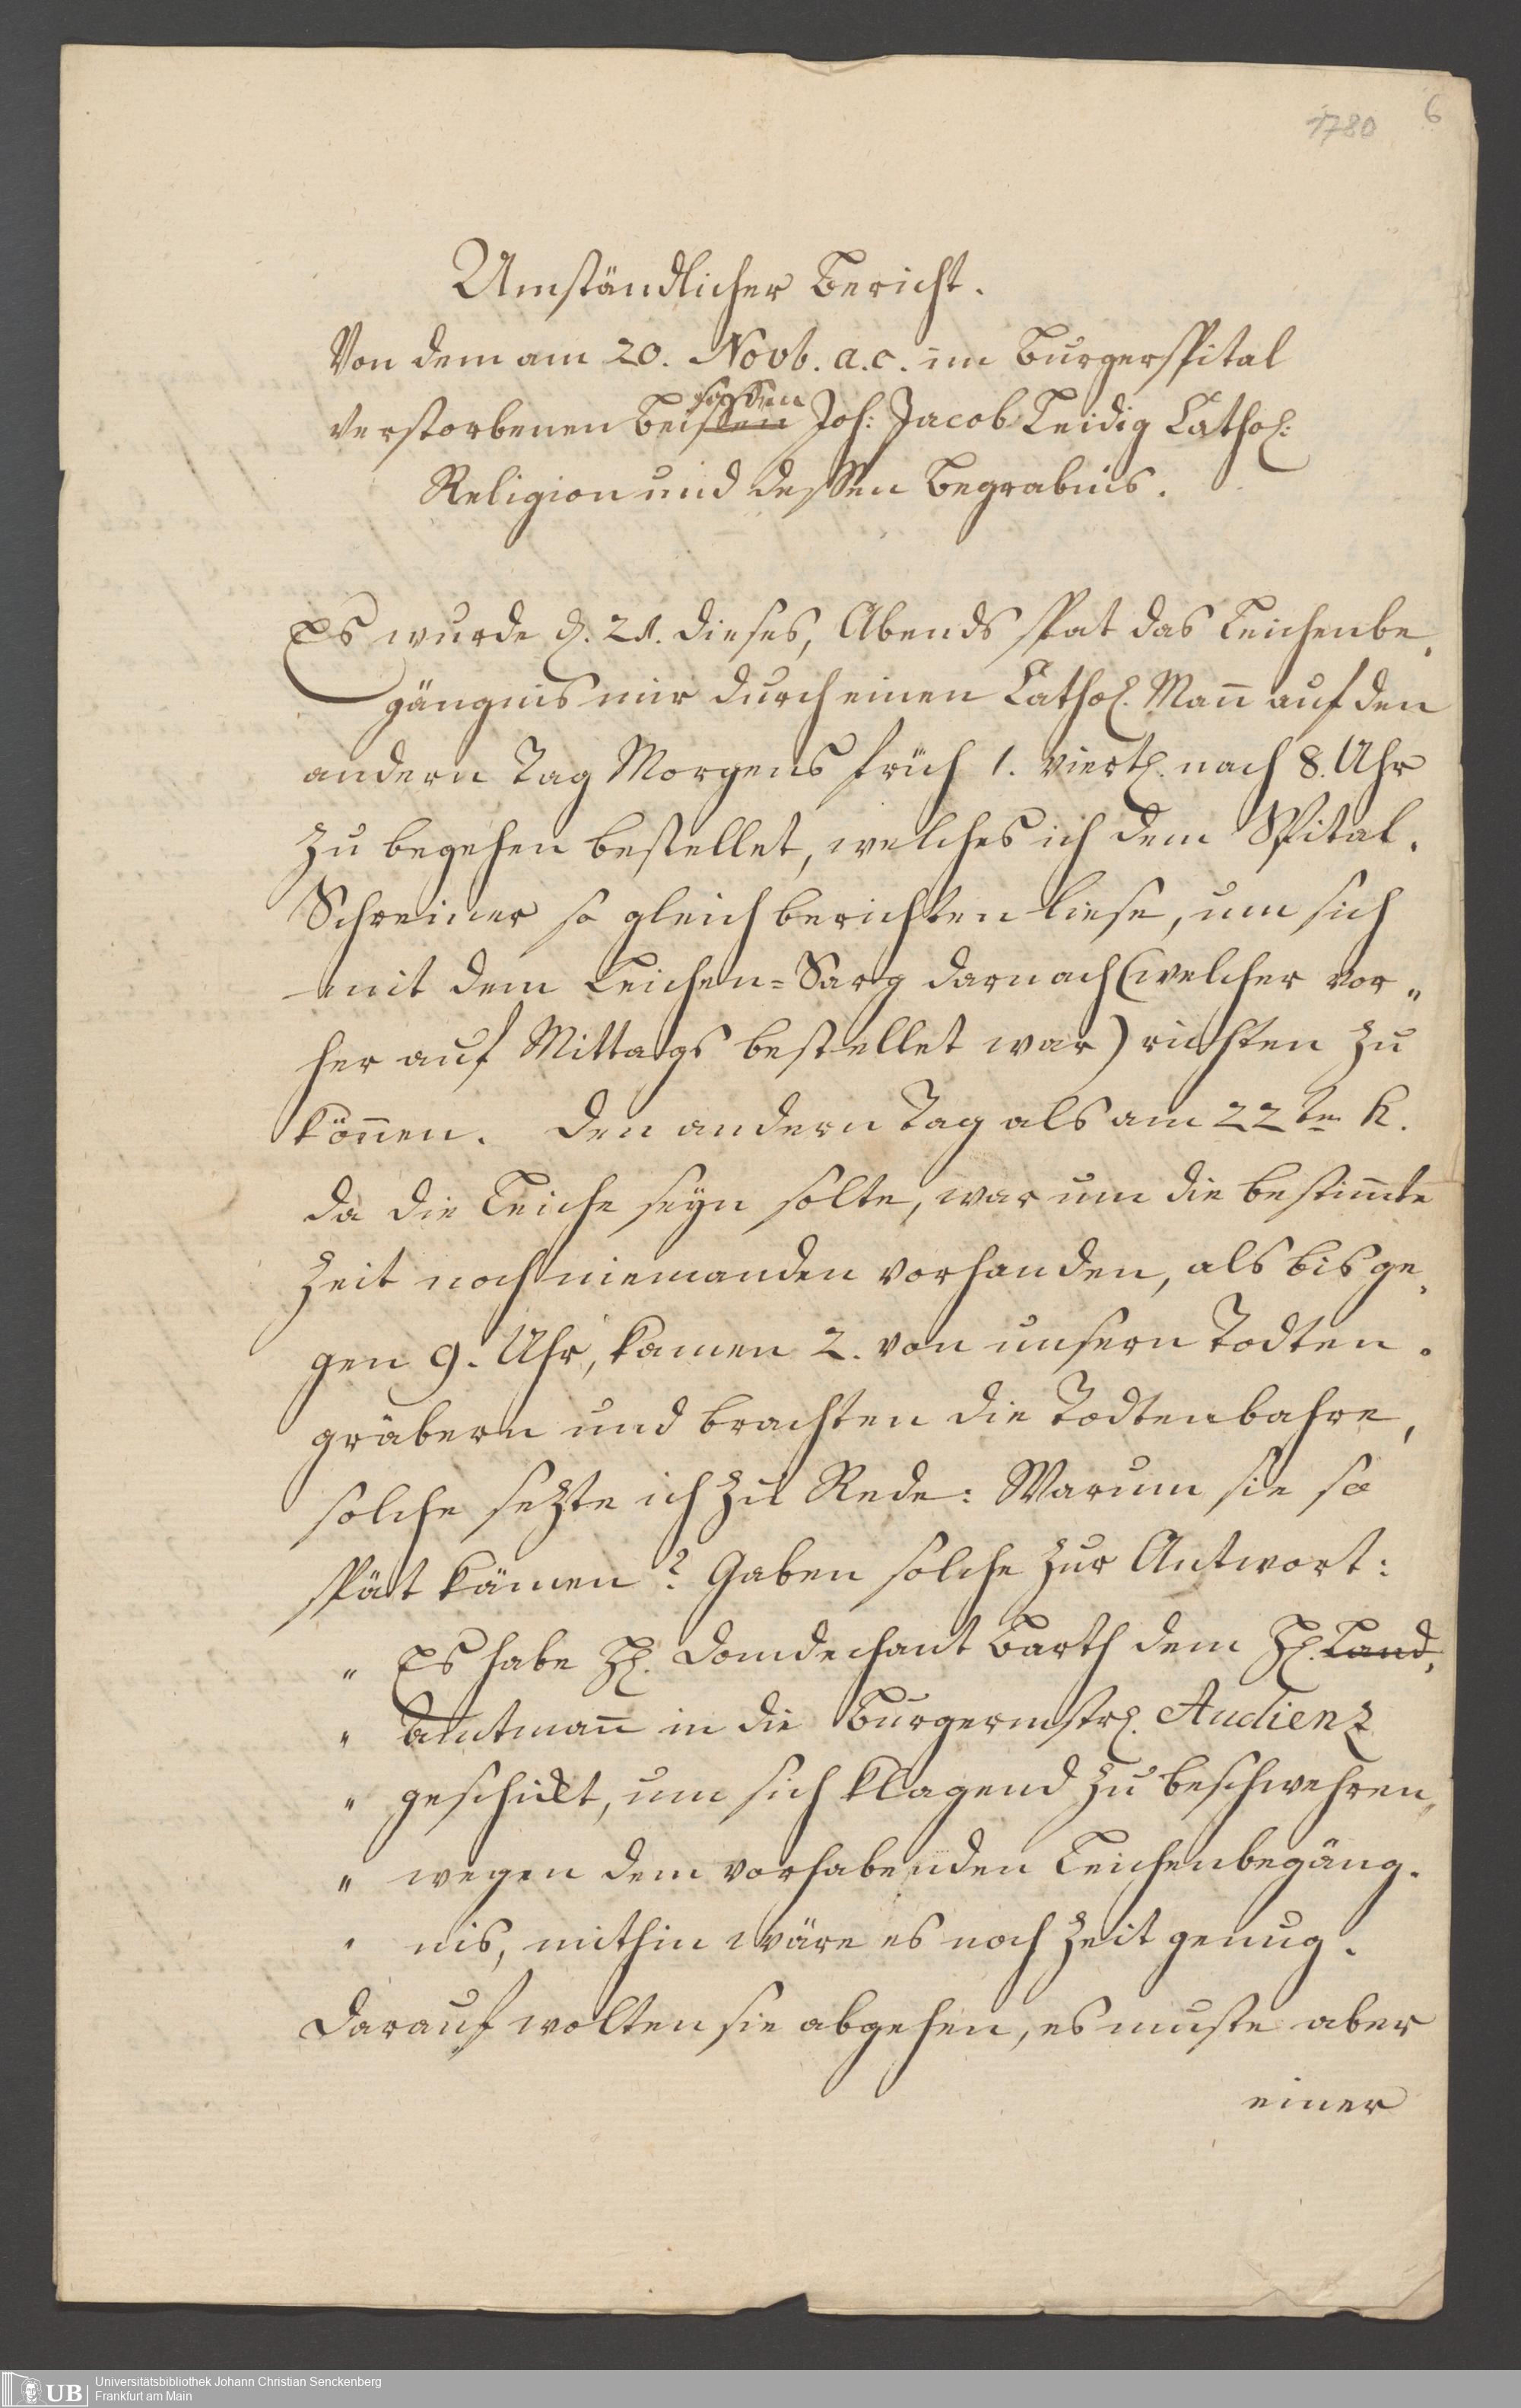 1780
6
Umständlicher Bericht.
Von dem am 20. Novb. a.c. im Burgerspital
sassen
verstorbenen Beissen Joh: Jacob Leidig Cathol:
Religion und dessen Begrabnis.
Es wurde d. 21. dieses, Abends spat das Leichenbe„
gängnis mir durch einen Cathol. Man̄ auf den
andern Tag Morgens früh 1. viertl. nach 8. Uhr
zu begehen bestellet, welches ich dem Spital„
Schreiner so gleich berichten liese, um sich
mit dem Leichen=Sarg darnach (welcher vor„
her auf Mittags bestellet war) richten zu
kön̄en. Den andern Tag als am 22ten h.
da die Leiche seyn solte, war um die bestim̄te
Zeit noch niemanden vorhanden, als bis ge„
gen 9. Uhr, kamen 2. von unsern Todten„
gräbern und brachten die Todtenbahre,
solche sezte ich zu Rede: Warum sie so
spät kämen? Gaben solche zur Antwort:
„ Es habe H. Domdechant Barth dem H. Land„
„ Amtman̄ in die Burgermstrl. Audienz
„ geschickt, um sich klagend zu beschwehren,
„ wegen dem vorhabenden Leichenbegäng„
„ nis, mithin wäre es noch Zeit genug.
Darauf wolten sie abgehen, es muste aber
einer
UB
Universitätsbibliothek Johann Christian Senckenberg
Frankfurt am Main